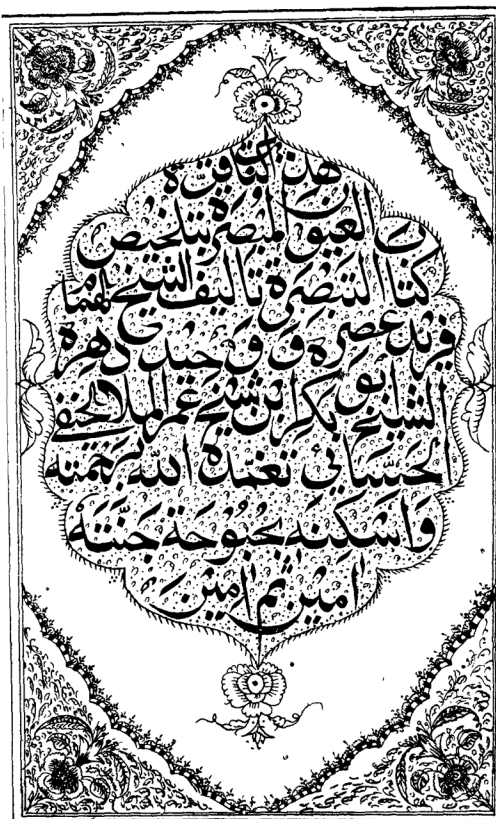 هذا كتاب قرة
العيون المبصرة بتلخيص
كتاب التبصرة تاليف الشيخ الهمام
فريد عصره ووحيد دهره
الشيخ ابو بكر ابن شيخ عمر الملا الحنفي
الحسائي تغمده الله برحمته
واسكنه بحبوحة جنته
امين ثم امين